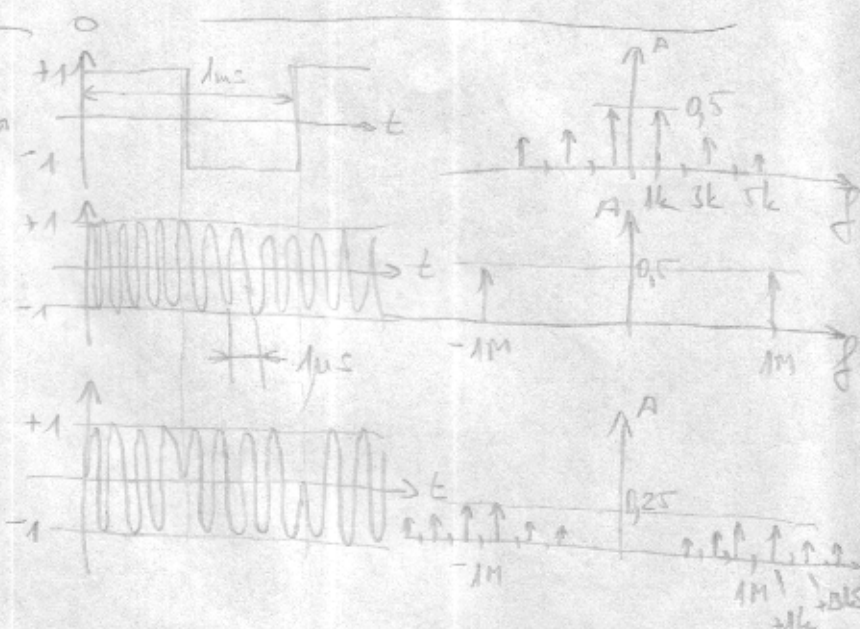 0
+1
1ms
t
-1
A
0,5
1k 3k 5k
f
+1
t
-1
1µs
A
0,5
-1M
1M
f
+1
t
-1
A
0,25
-1M
1M
+1k